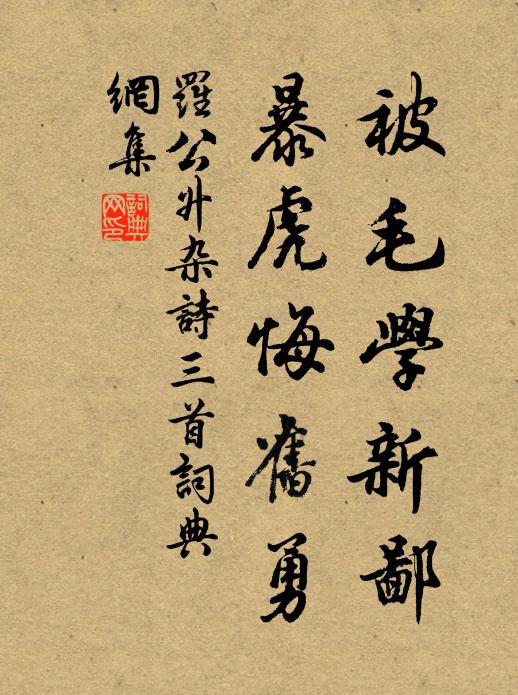 被毛學新鄙
暴虎悔舊勇
羅公升杂詩三首詞典
網集
詞典
网印